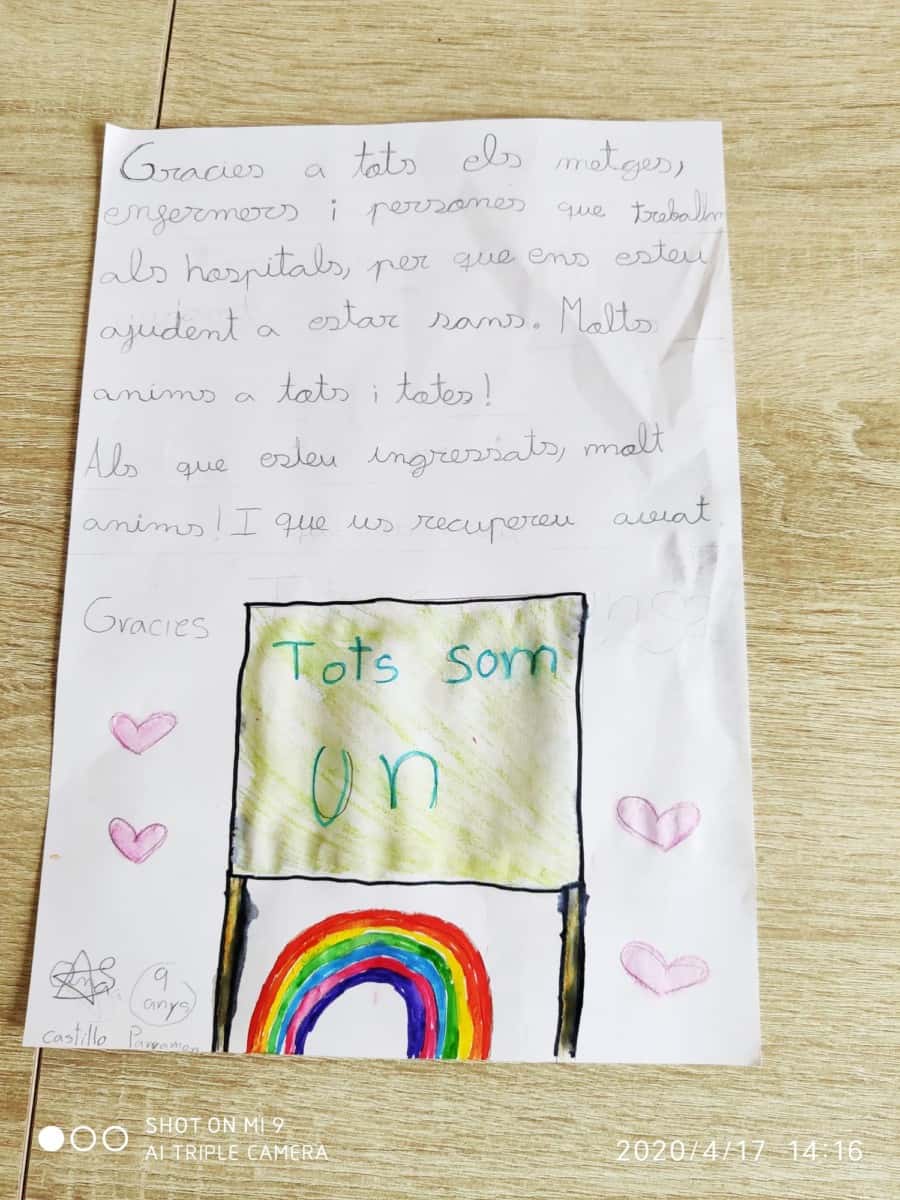 Gracies a tots els metges,
enfermers i persones que treballn
als hospitals, per que ens esteu
ajudent a estar sans. Molts
anims a tots i totes!
Als que esteu ingressats, molt
anims! I que us recupereu aviat
Gracies
Tots som
un
9
anys
castillo
SHOT ON MI 9
AI TRIPLE CAMERA
2020/4/17 14:16